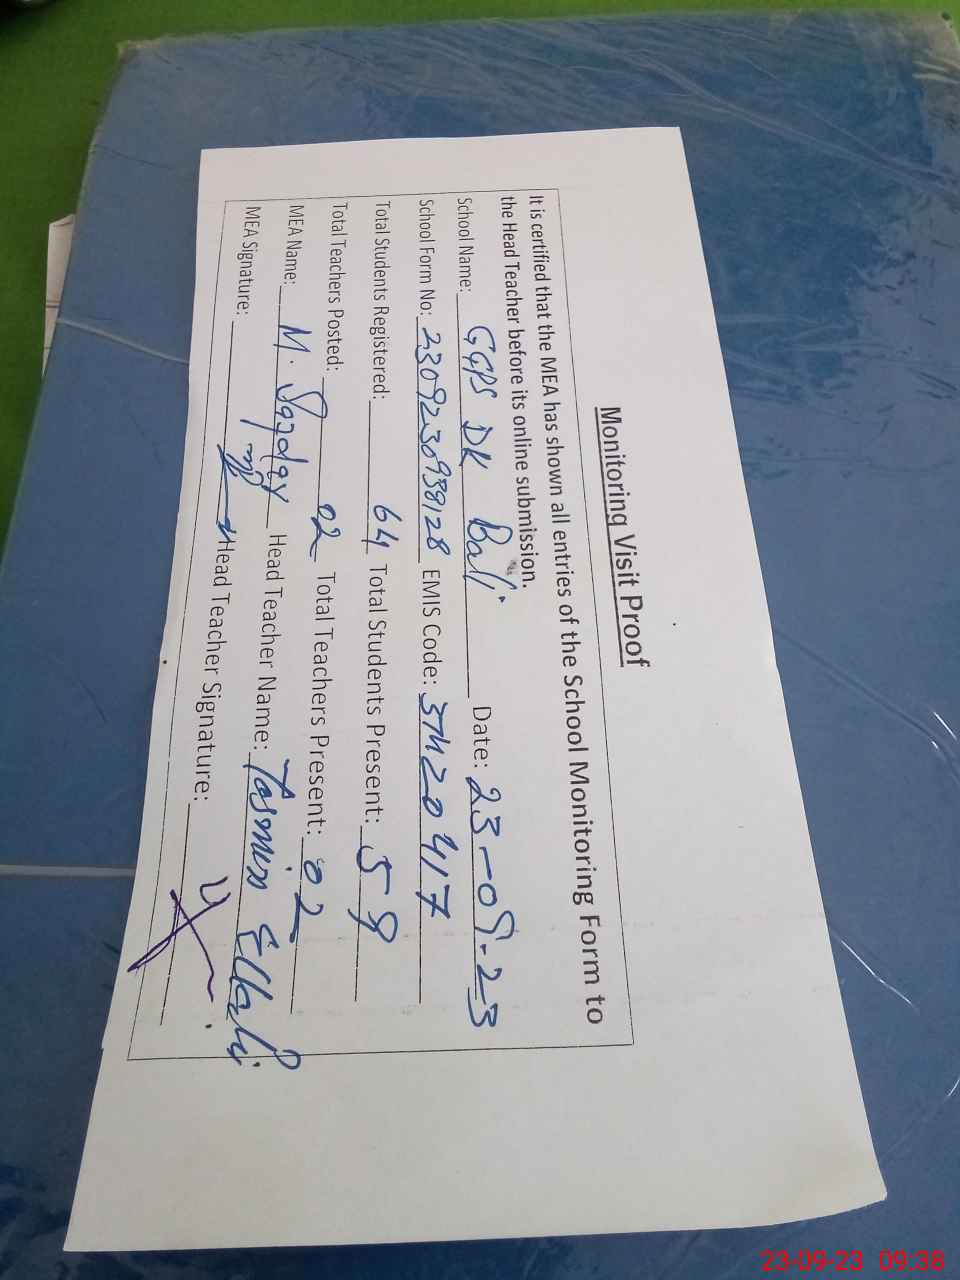 Monitoring Visit Proof
It is certified that the MEA has shown all entries of the School Monitoring Form to
the Head Teacher before its online submission.
School Name: GGPS DK Ball Date: 23-09-23
School Form No: 230923098128 EMIS Code: 37420417
Total Students Registered: 64 Total Students Present: 58
Total Teachers Posted: 02 Total Teachers Present: 02
MEA Name: M. Head Teacher Name:
MEA Signature: Head Teacher Signature:
23-09-23 09:38